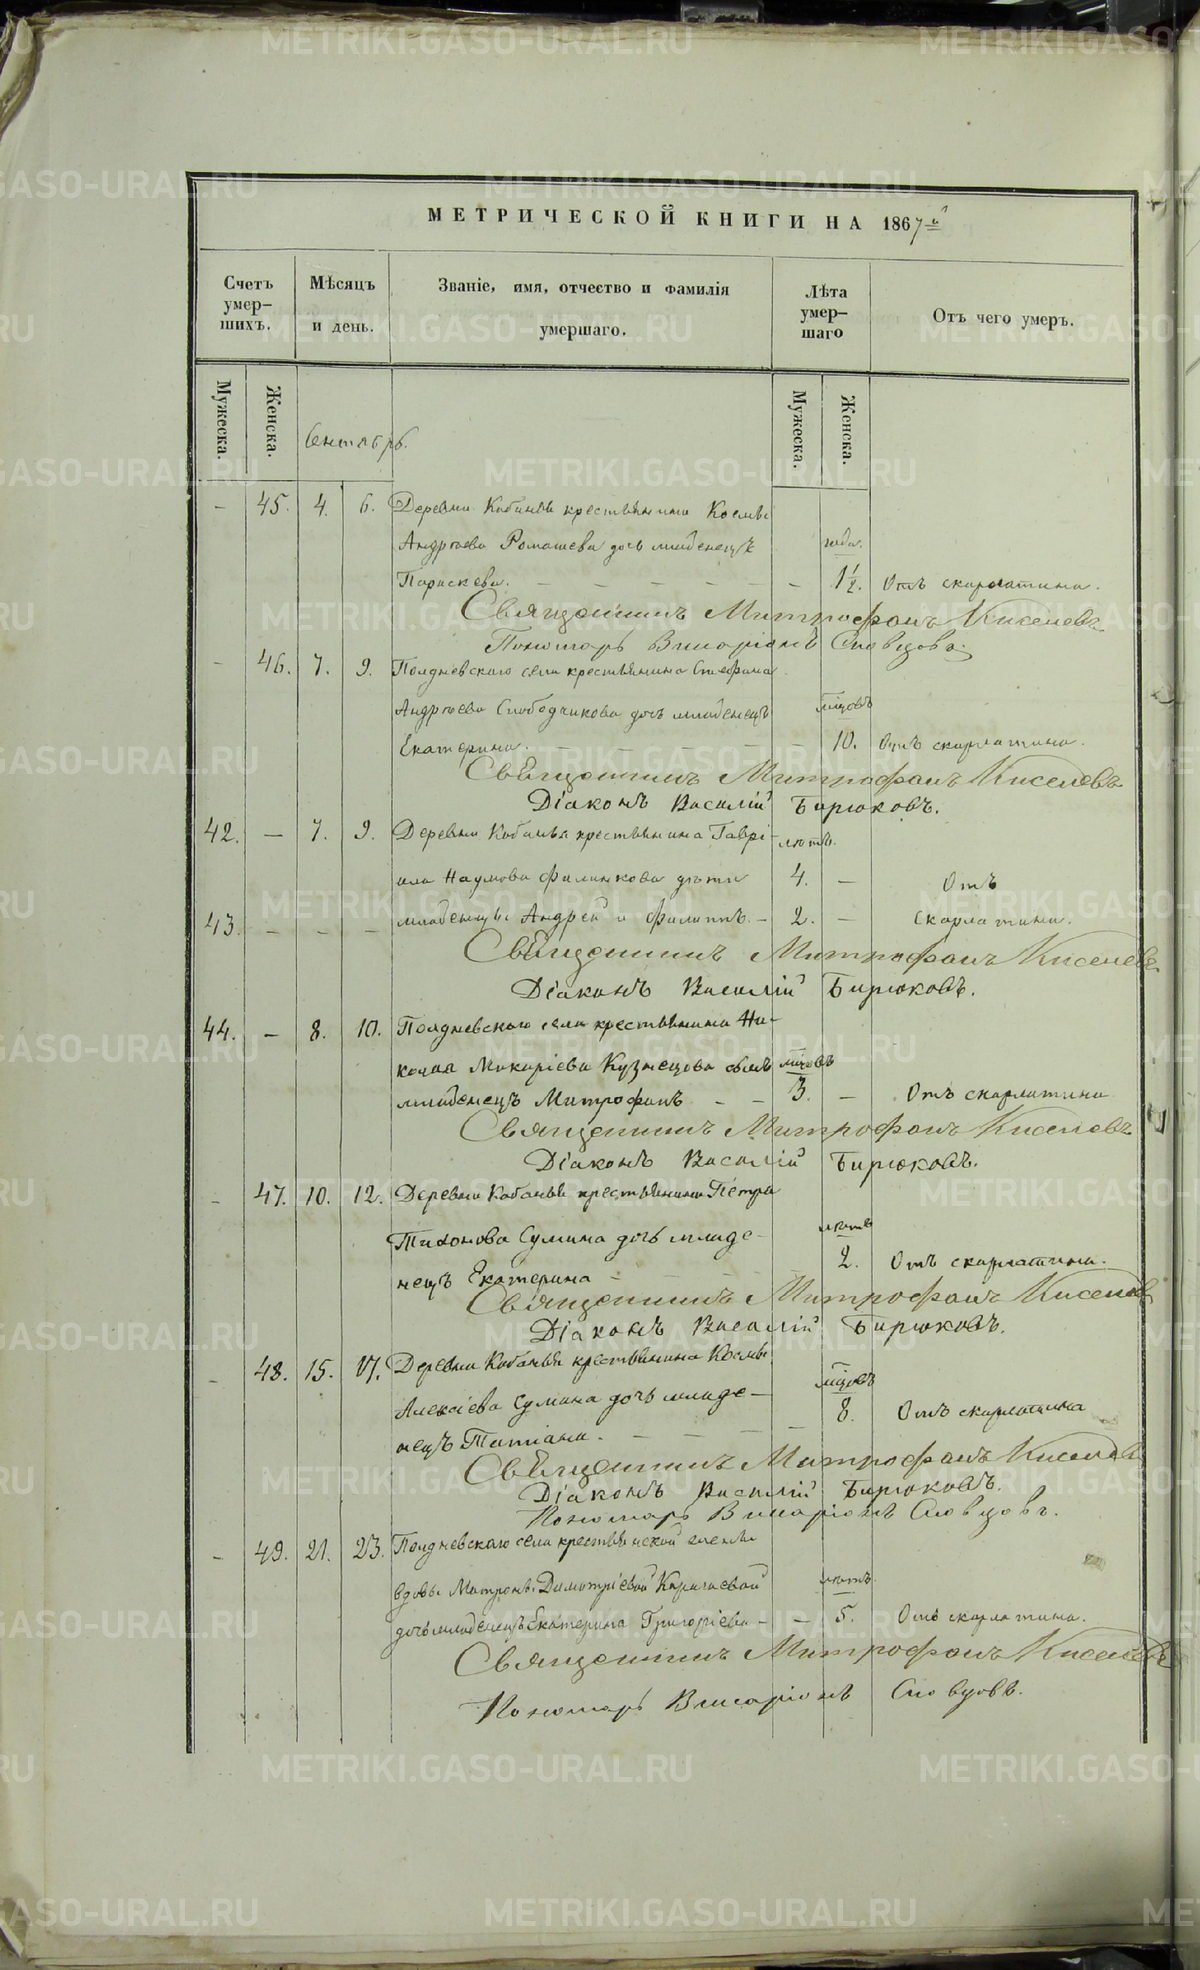 МЕТРИЧЕСКОЙ КНИГИ НА 1867й
Счетъ умер-шихъ. Мѣсяцъ и день. Званіе, имя, отчество и фамилія умершаго. Лѣта умер-шаго Отъ чего умеръ.
Мужеска. Женска. Сентябрь. Мужеска. Женска.
— 45. 4. 6. Деревни Кабаньи крестьянина Космы
Андреева Ромашева дочь младенецъ года.
Параскева. — 1½. Отъ скарлатины.
Священникъ Митрофанъ Киселевъ
Пономарь Висаріонъ Словцовъ.
— 46. 7. 9. Полдневскаго села крестьянина Стефана
Андреева Слободчикова дочь младенецъ мѣсяцовъ
Екатерина. — 10. Отъ скарлатины.
Священникъ Митрофанъ Киселевъ
Діаконъ Василій Бирюковъ.
42. — 7. 9. Деревни Кабаньи крестьянина Гаврі- лѣтъ.
ила Наумова Филинкова дѣти 4. — Отъ
43. — — — младенцы Андрей и Филиппъ. — 2. — скарлатины.
Священникъ Митрофанъ Киселевъ
Діаконъ Василій Бирюковъ.
44. — 8. 10. Полдневскаго села крестьянина Ни-
колая Макаріева Кузнецова сынъ мѣсяцовъ
младенецъ Митрофанъ — — 3. — Отъ скарлатины
Священникъ Митрофанъ Киселевъ
Діаконъ Василій Бирюковъ.
— 47. 10. 12. Деревни Кабаньи крестьянина Петра
Тихонова Сумина дочь младе- лѣтъ
нецъ Екатерина — 2. Отъ скарлатины.
Священникъ Митрофанъ Киселевъ
Діаконъ Василій Бирюковъ.
— 48. 15. 17. Деревни Кабаньи крестьянина Космы
Алексіева Сумина дочь младе- мѣсяцовъ
нецъ Татіана. — 8. Отъ скарлатины
Священникъ Митрофанъ Киселевъ
Діаконъ Василій Бирюковъ.
Пономарь Висаріонъ Словцовъ.
— 49. 21. 23. Полдневскаго села крестьянской
вдовы Матроны Димитріевой лѣтъ.
дочь младенецъ Екатерина Григоріева — — 5. Отъ скарлатины.
Священникъ Митрофанъ Киселевъ
Пономарь Висаріонъ Словцовъ.
METRIKI.GASO-URAL.RU